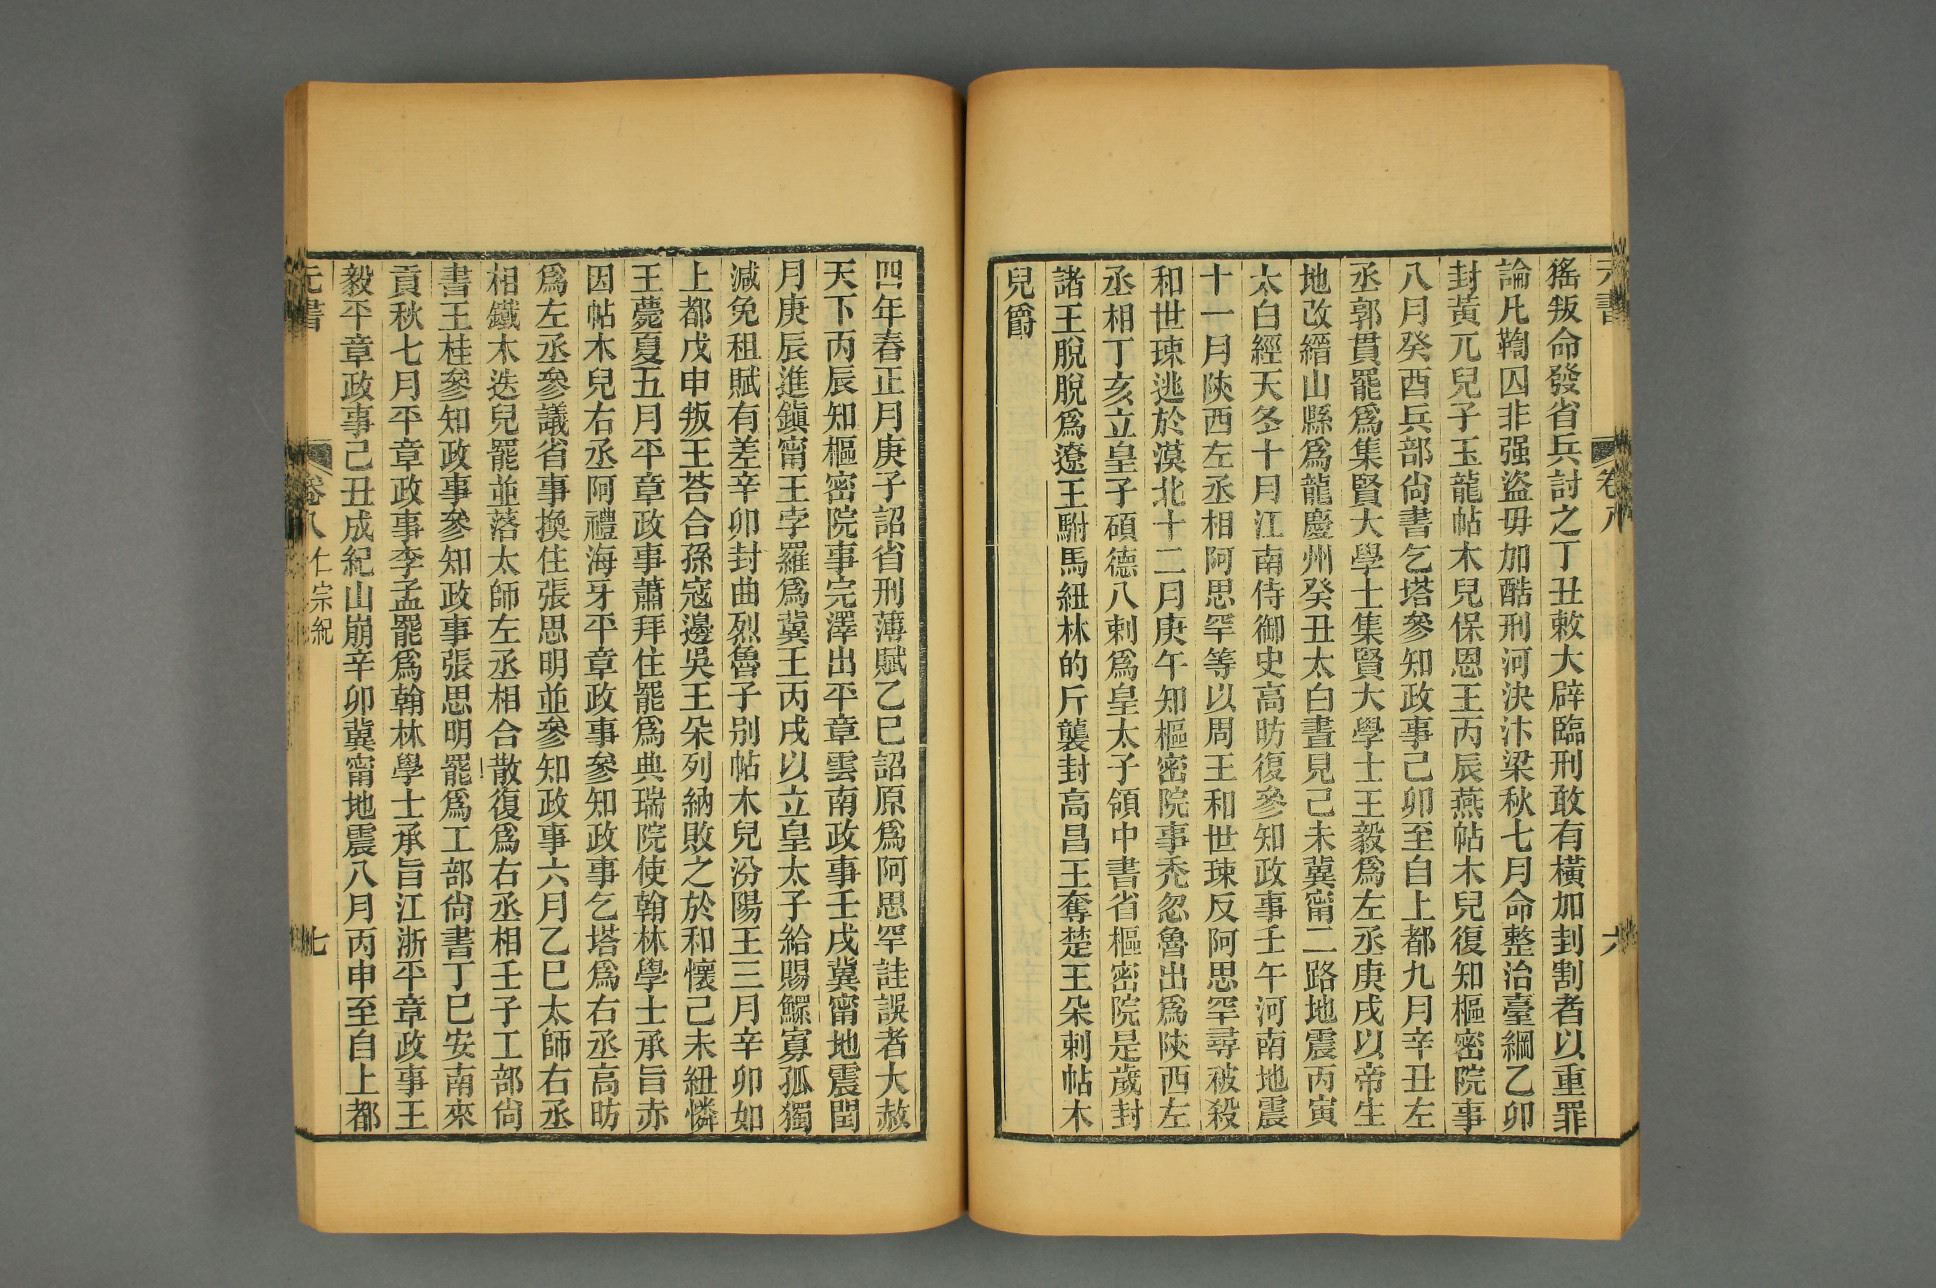 元書 卷八 六
猺叛命發省兵討之丁丑敕大辟臨刑敢有橫加刲割者以重罪
論凡鞫囚非强盜毋加酷刑河決汴梁秋七月命整治臺綱乙卯
封黃兀兒子玉龍帖木兒保恩王丙辰燕帖木兒復知樞密院事
八月癸酉兵部尙書乞塔參知政事己卯至自上都九月辛丑左
丞郭貫罷爲集賢大學士集賢大學士王毅爲左丞庚戌以帝生
地改縉山縣爲龍慶州癸丑太白晝見己未冀甯二路地震丙寅
太白經天冬十月江南侍御史高昉復參知政事壬午河南地震
十一月陝西左丞相阿思罕等以周王和世㻋反阿思罕尋被殺
和世㻋逃於漠北十二月庚午知樞密院事禿忽魯出爲陝西左
丞相丁亥立皇子碩德八剌爲皇太子領中書省樞密院是歲封
諸王脫脫爲遼王駙馬紐林的斤襲封高昌王奪楚王朵剌帖木
兒爵
四年春正月庚子詔省刑薄賦乙巳詔原爲阿思罕詿誤者大赦
天下丙辰知樞密院事完澤出平章雲南政事壬戌冀甯地震閏
月庚辰進鎭甯王孛羅爲冀王丙戌以立皇太子給賜鰥寡孤獨
減免租賦有差辛卯封曲烈魯子别帖木兒汾陽王三月辛卯如
上都戊申叛王荅合孫寇邊吳王朵列納敗之於和懷己未紐憐
王薨夏五月平章政事蕭拜住罷爲典瑞院使翰林學士承旨赤
因帖木兒右丞阿禮海牙平章政事參知政事乞塔爲右丞高昉
爲左丞參議省事換住張思明並參知政事六月乙巳太師右丞
相鐵木迭兒罷並落太師左丞相合散復爲右丞相壬子工部尙
書王桂參知政事參知政事張思明罷爲工部尙書丁巳安南來
貢秋七月平章政事李孟罷爲翰林學士承旨江浙平章政事王
毅平章政事己丑成紀山崩辛卯冀甯地震八月丙申至自上都
元書 卷八 仁宗紀 七